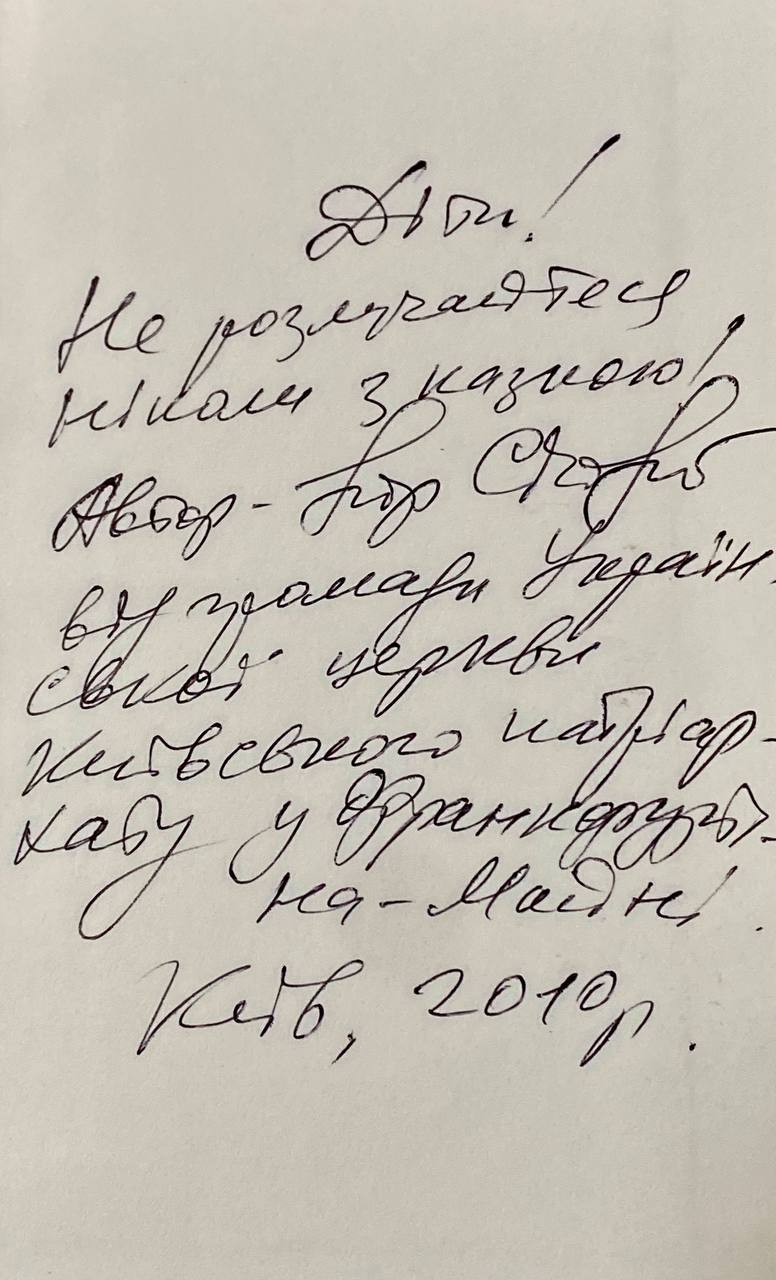 Діти!
Не розлучайтеся
ніколи з казкою!
Автор - Ігор
від громади Україн-
ської церкви
Київського патріар-
хату у Франкфурті-
на-Майні.
Київ, 2010р.